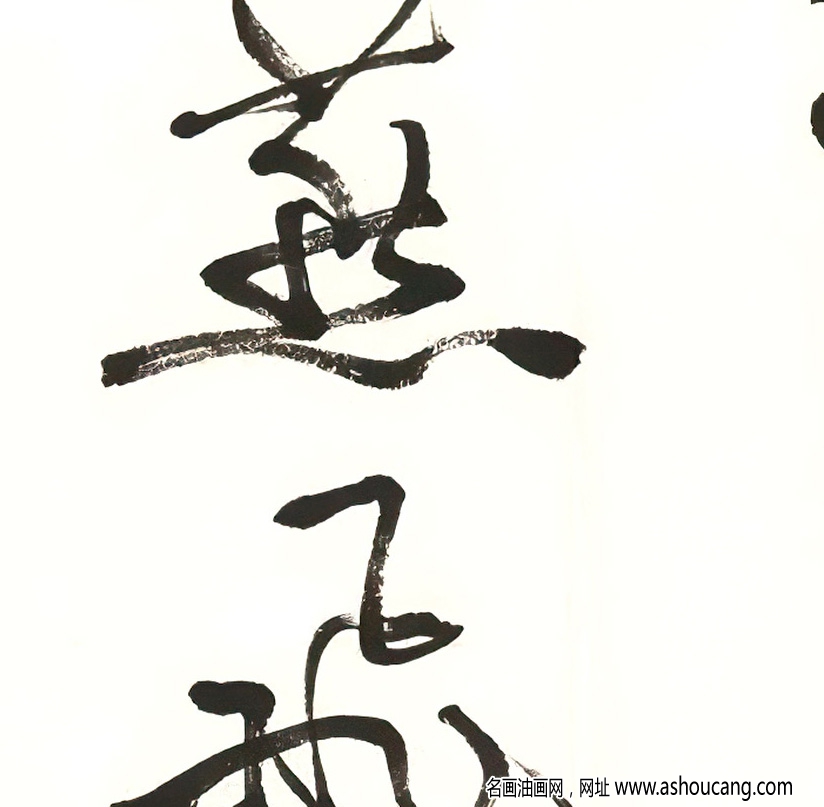 燕
飛
名画油画网，网址 www.ashoucang.com